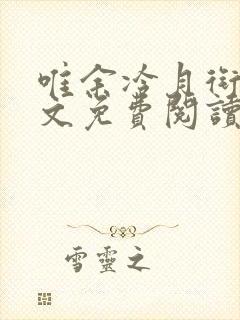 唯余冷月
文免費閱讀
雪靈之